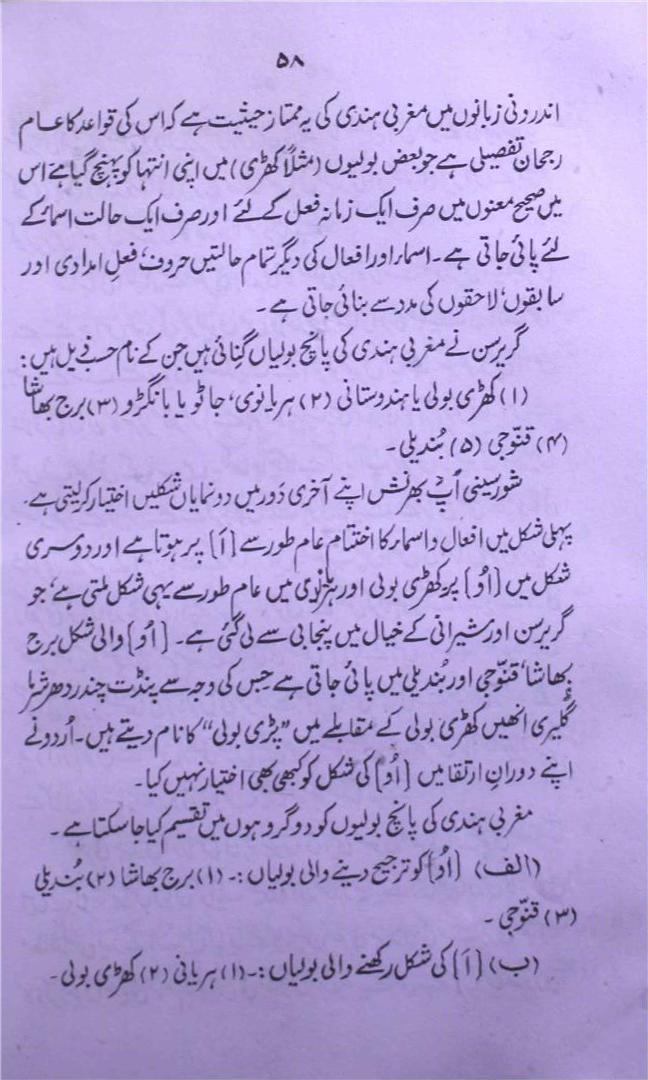 ۵۸
اندرونی زبانوں میں مغربی ہندی کی یہ ممتاز حیثیت ہے کہ اس کی قواعد کا عام
رجحان تفصیلی ہے جو بعض بولیوں (مثلاً کھڑی) میں اپنی انتہا کو پہنچ گیا ہے اس
میں صحیح معنوں میں صرف ایک زمانہ فعل کے لئے اور صرف ایک حالت اسماء کے
لئے پائی جاتی ہے۔ اسماء اور افعال کی دیگر تمام حالتیں حروف، فعلِ امدادی اور
سابقوں، لاحقوں کی مدد سے بنائی جاتی ہے۔
گریرسن نے مغربی ہندی کی پانچ بولیاں گنائی ہیں جن کے نام حسب ذیل ہیں :
(۱) کھڑی بولی یا ہندوستانی (۲) ہریانوی، جاٹو یا بانگڑو (۳) برج بھاشا
(۴) قنّوجی (۵) بُندیلی۔
شورسینی اُپ بھرنش اپنے آخری دَور میں دو نمایاں شکلیں اختیار کر لیتی ہے۔
پہلی شکل میں افعال و اسماء کا اختتام عام طور سے [اَ] پر ہوتا ہے اور دوسری
شکل میں [اُو] پر۔ کھڑی بولی اور ہریانوی میں عام طور سے یہی شکل ملتی ہے، جو
گریرسن اور شیرانی کے خیال میں پنجابی سے لی گئی ہے۔ [اُو] والی شکل برج
بھاشا، قنّوجی اور بُندیلی میں پائی جاتی ہے جس کی وجہ سے پنڈت چندر دھر شرما
گلیری انھیں کھڑی بولی کے مقابلے میں ”پڑی بولی“ کا نام دیتے ہیں۔ اُردو نے
اپنے دورانِ ارتقا میں [اُو] کی شکل کو کبھی بھی اختیار نہیں کیا۔
مغربی ہندی کی پانچ بولیوں کو دو گروہوں میں تقسیم کیا جا سکتا ہے۔
(الف) [اُو] کو ترجیح دینے والی بولیاں :۔ (۱) برج بھاشا (۲) بُندیلی
(۳) قنّوجی۔
(ب) [اَ] کی شکل رکھنے والی بولیاں :۔ (۱) ہریانی (۲) کھڑی بولی۔